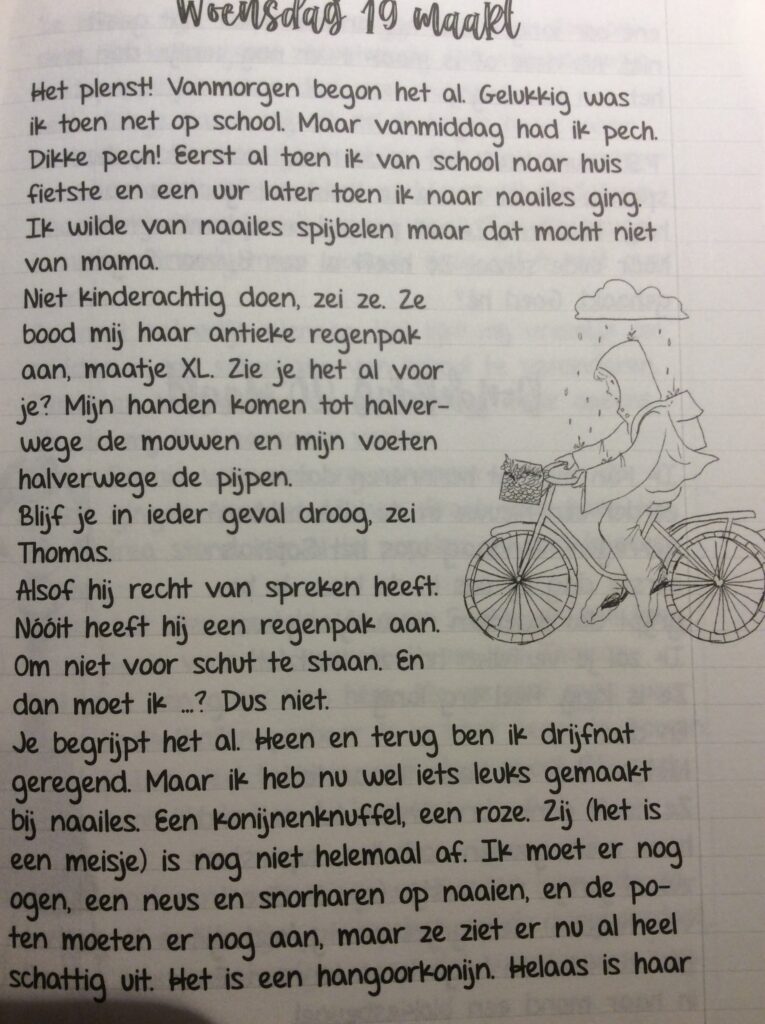 Woensdag 19 maart
Het plenst! Vanmorgen begon het al. Gelukkig was
ik toen net op school. Maar vanmiddag had ik pech.
Dikke pech! Eerst al toen ik van school naar huis
fietste en een uur later toen ik naar naailes ging.
Ik wilde van naailes spijbelen maar dat mocht niet
van mama.
Niet kinderachtig doen, zei ze. Ze
bood mij haar antieke regenpak
aan, maatje XL. Zie je het al voor
je? Mijn handen komen tot halver-
wege de mouwen en mijn voeten
halverwege de pijpen.
Blijf je in ieder geval droog, zei
Thomas.
Alsof hij recht van spreken heeft.
Nóóit heeft hij een regenpak aan.
Om niet voor schut te staan. En
dan moet ik ...? Dus niet.
Je begrijpt het al. Heen en terug ben ik drijfnat
geregend. Maar ik heb nu wel iets leuks gemaakt
bij naailes. Een konijnenknuffel, een roze. Zij (het is
een meisje) is nog niet helemaal af. Ik moet er nog
ogen, een neus en snorharen op naaien, en de po-
ten moeten er nog aan, maar ze ziet er nu al heel
schattig uit. Het is een hangoorkonijn. Helaas is haar